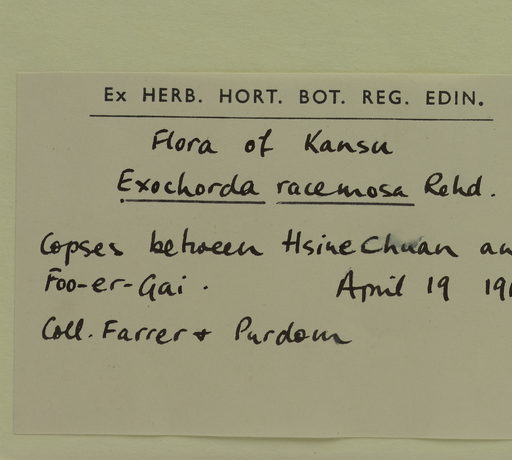 Ex HERB. HORT. BOT. REG. EDIN.
Flora of Kansu
Exochorda racemosa Rehd.
Copses between Hsine Chuan an
Foo-er-Gai. April 19 191
Coll. Farrer + Purdom